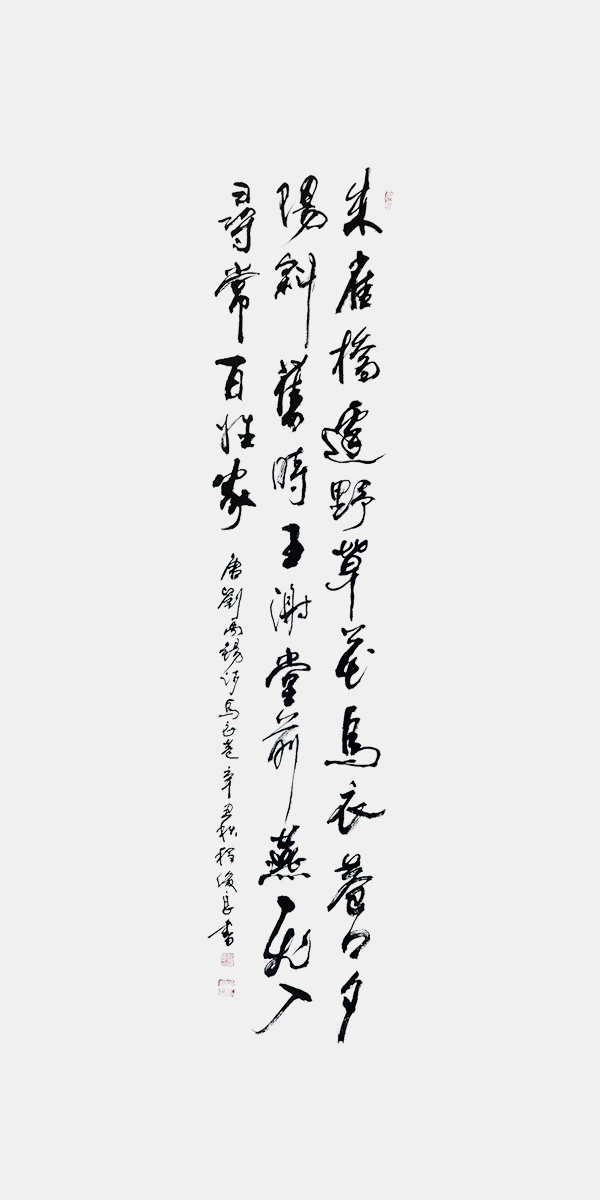 朱雀橋邊野草花烏衣巷口夕
陽斜舊時王謝堂前燕飛入
尋常百姓家
唐劉禹錫詩烏衣巷辛丑秋楊俊良書